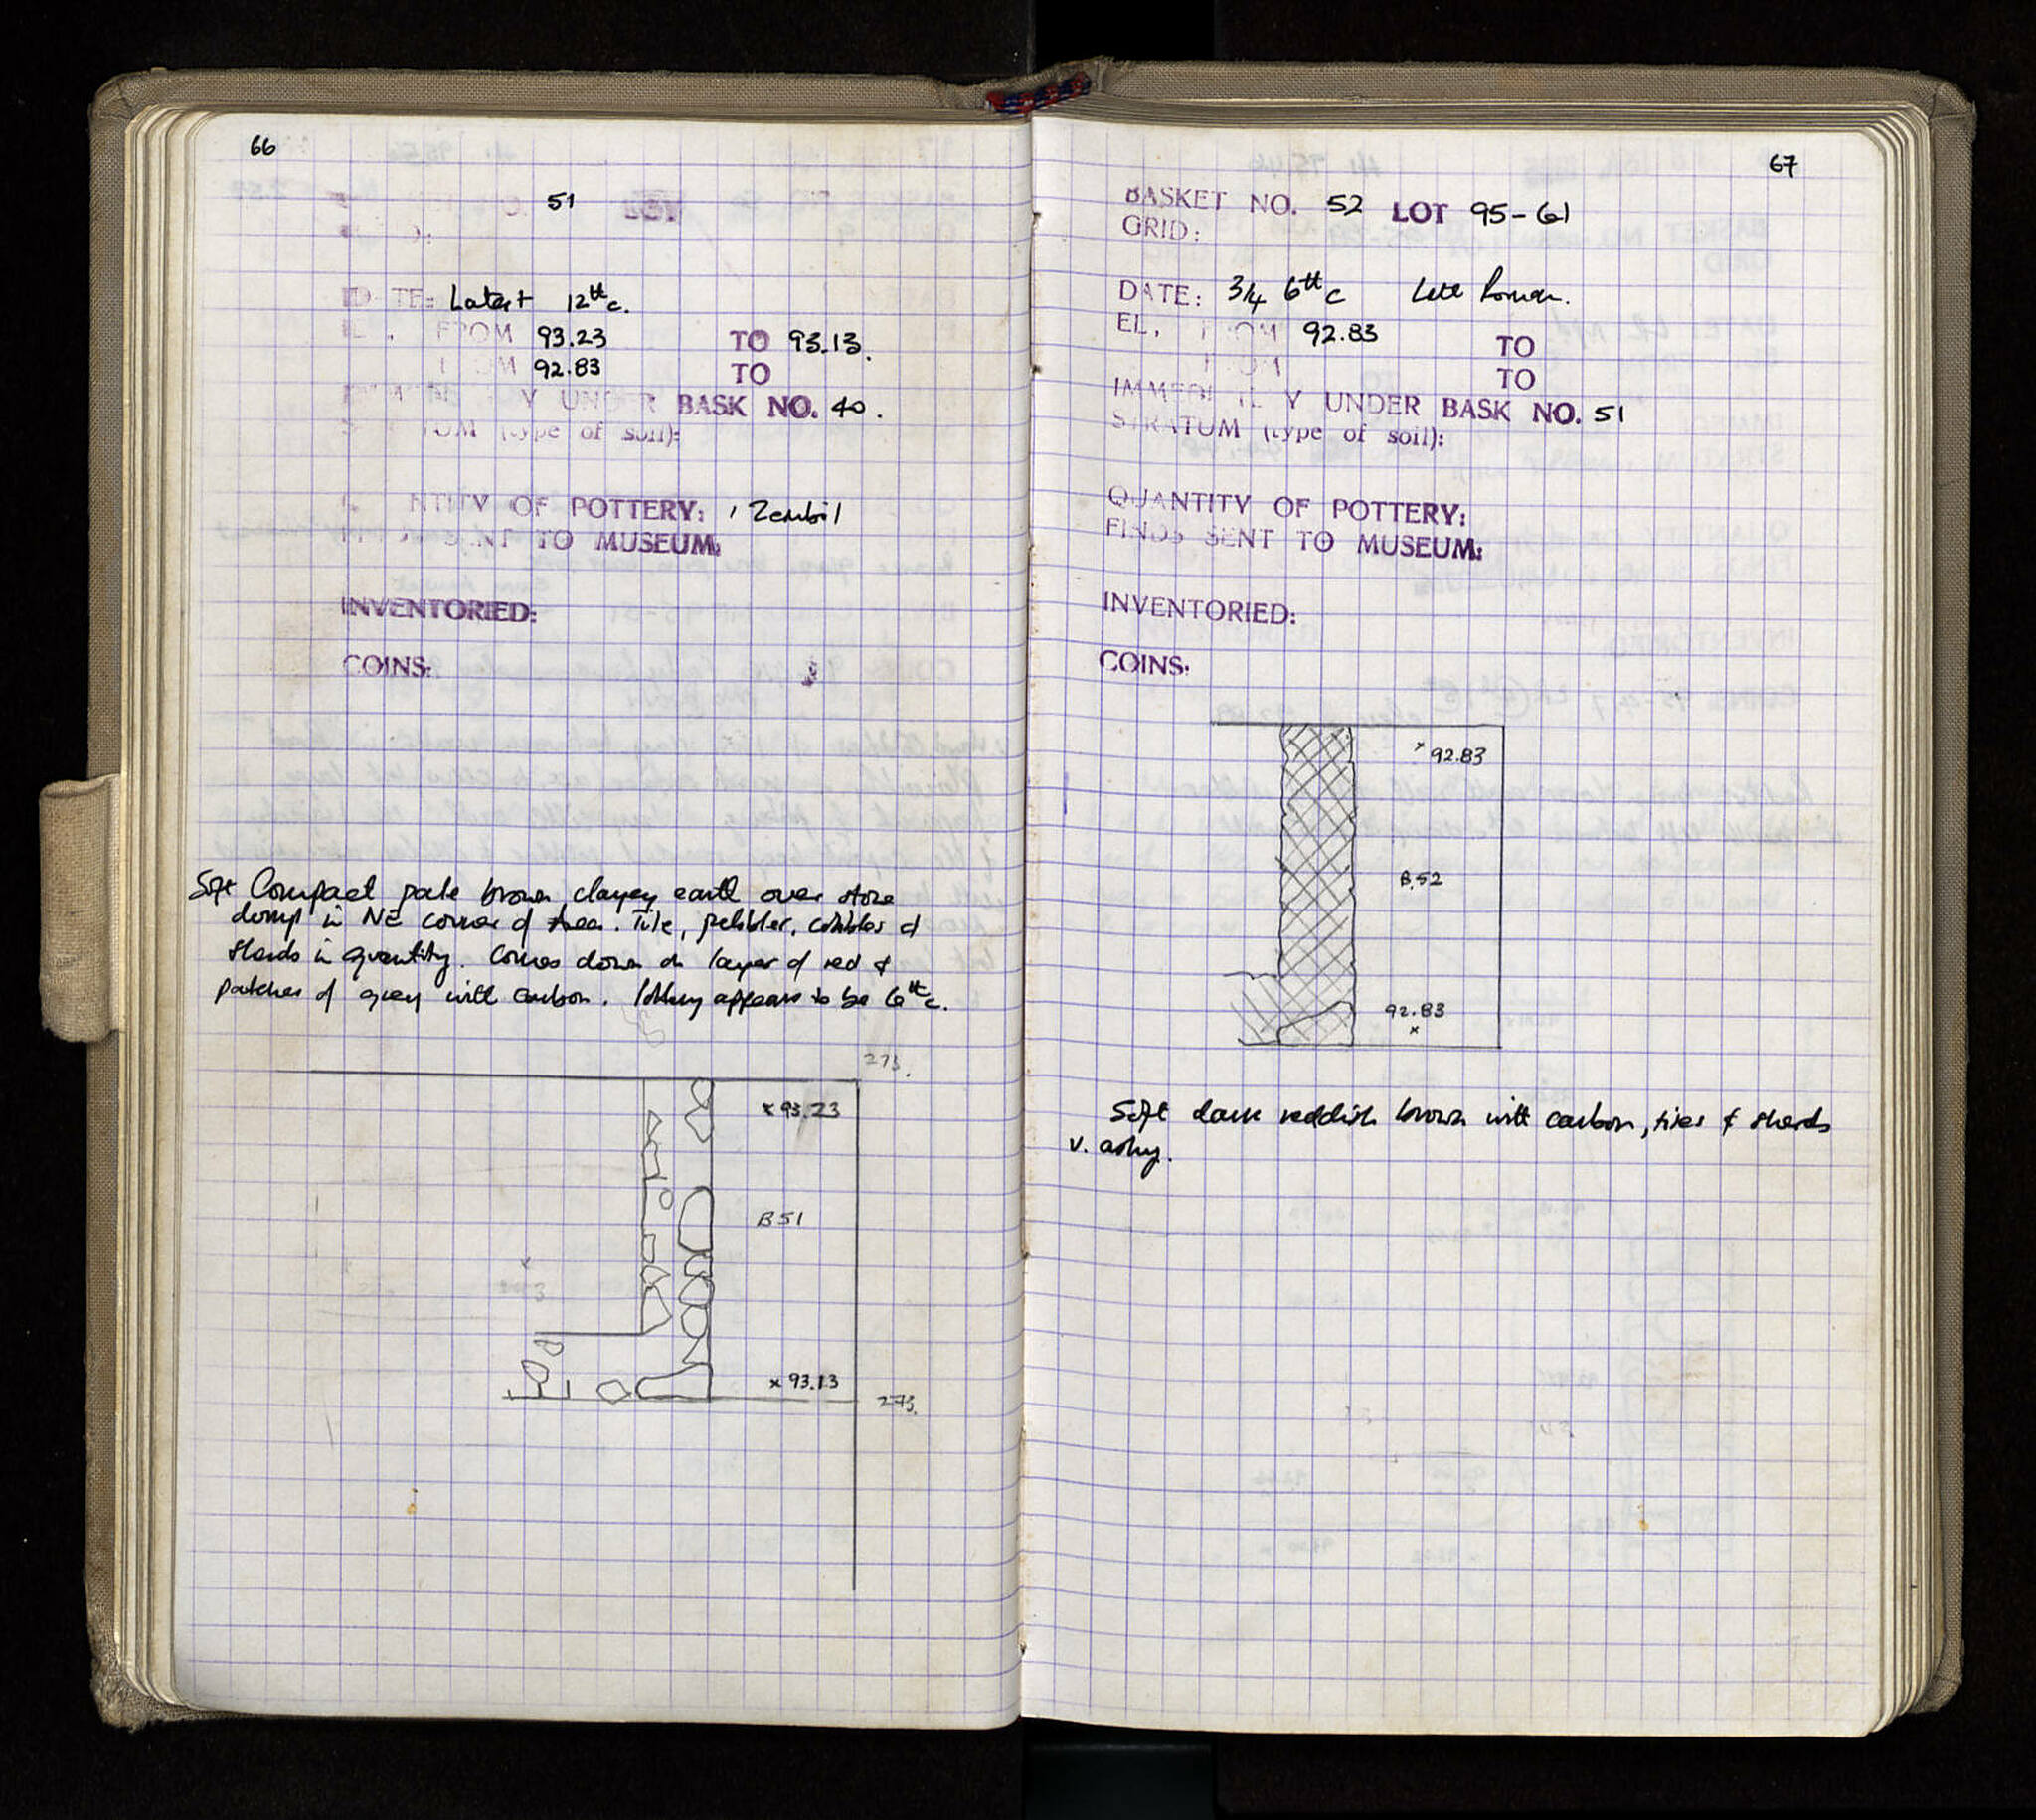 66
51 LOT
DATE: Latest 12th c.
EL, FROM 93.23 TO 93.13.
FROM 92.83 TO
Y UNDER BASK NO. 40.
STRATUM (type of soil):
QUANTITY OF POTTERY: 1 Zembil
FINDS SENT TO MUSEUM:
INVENTORIED:
COINS:
Soft Compact pale brown clayey earth over stone
dump in NE corner of Area. Tile, pebbles, cobbles &
sherds in quantity. Comes down on layer of red &
patches of grey with carbon. Pottery appears to be 6th c.
273.
x 93.23
B 51
x 93.13
273.
67
BASKET NO. 52 LOT 95-61
GRID:
DATE: 3/4 6th c Late Roman.
EL, FROM 92.83 TO
FROM TO
IMMEDIATELY UNDER BASK NO. 51
STRATUM (type of soil):
QUANTITY OF POTTERY:
FINDS SENT TO MUSEUM:
INVENTORIED:
COINS:
x 92.83
B.52
92.83
x
Soft dark reddish brown with carbon, tiles & sherds
v. ashy.